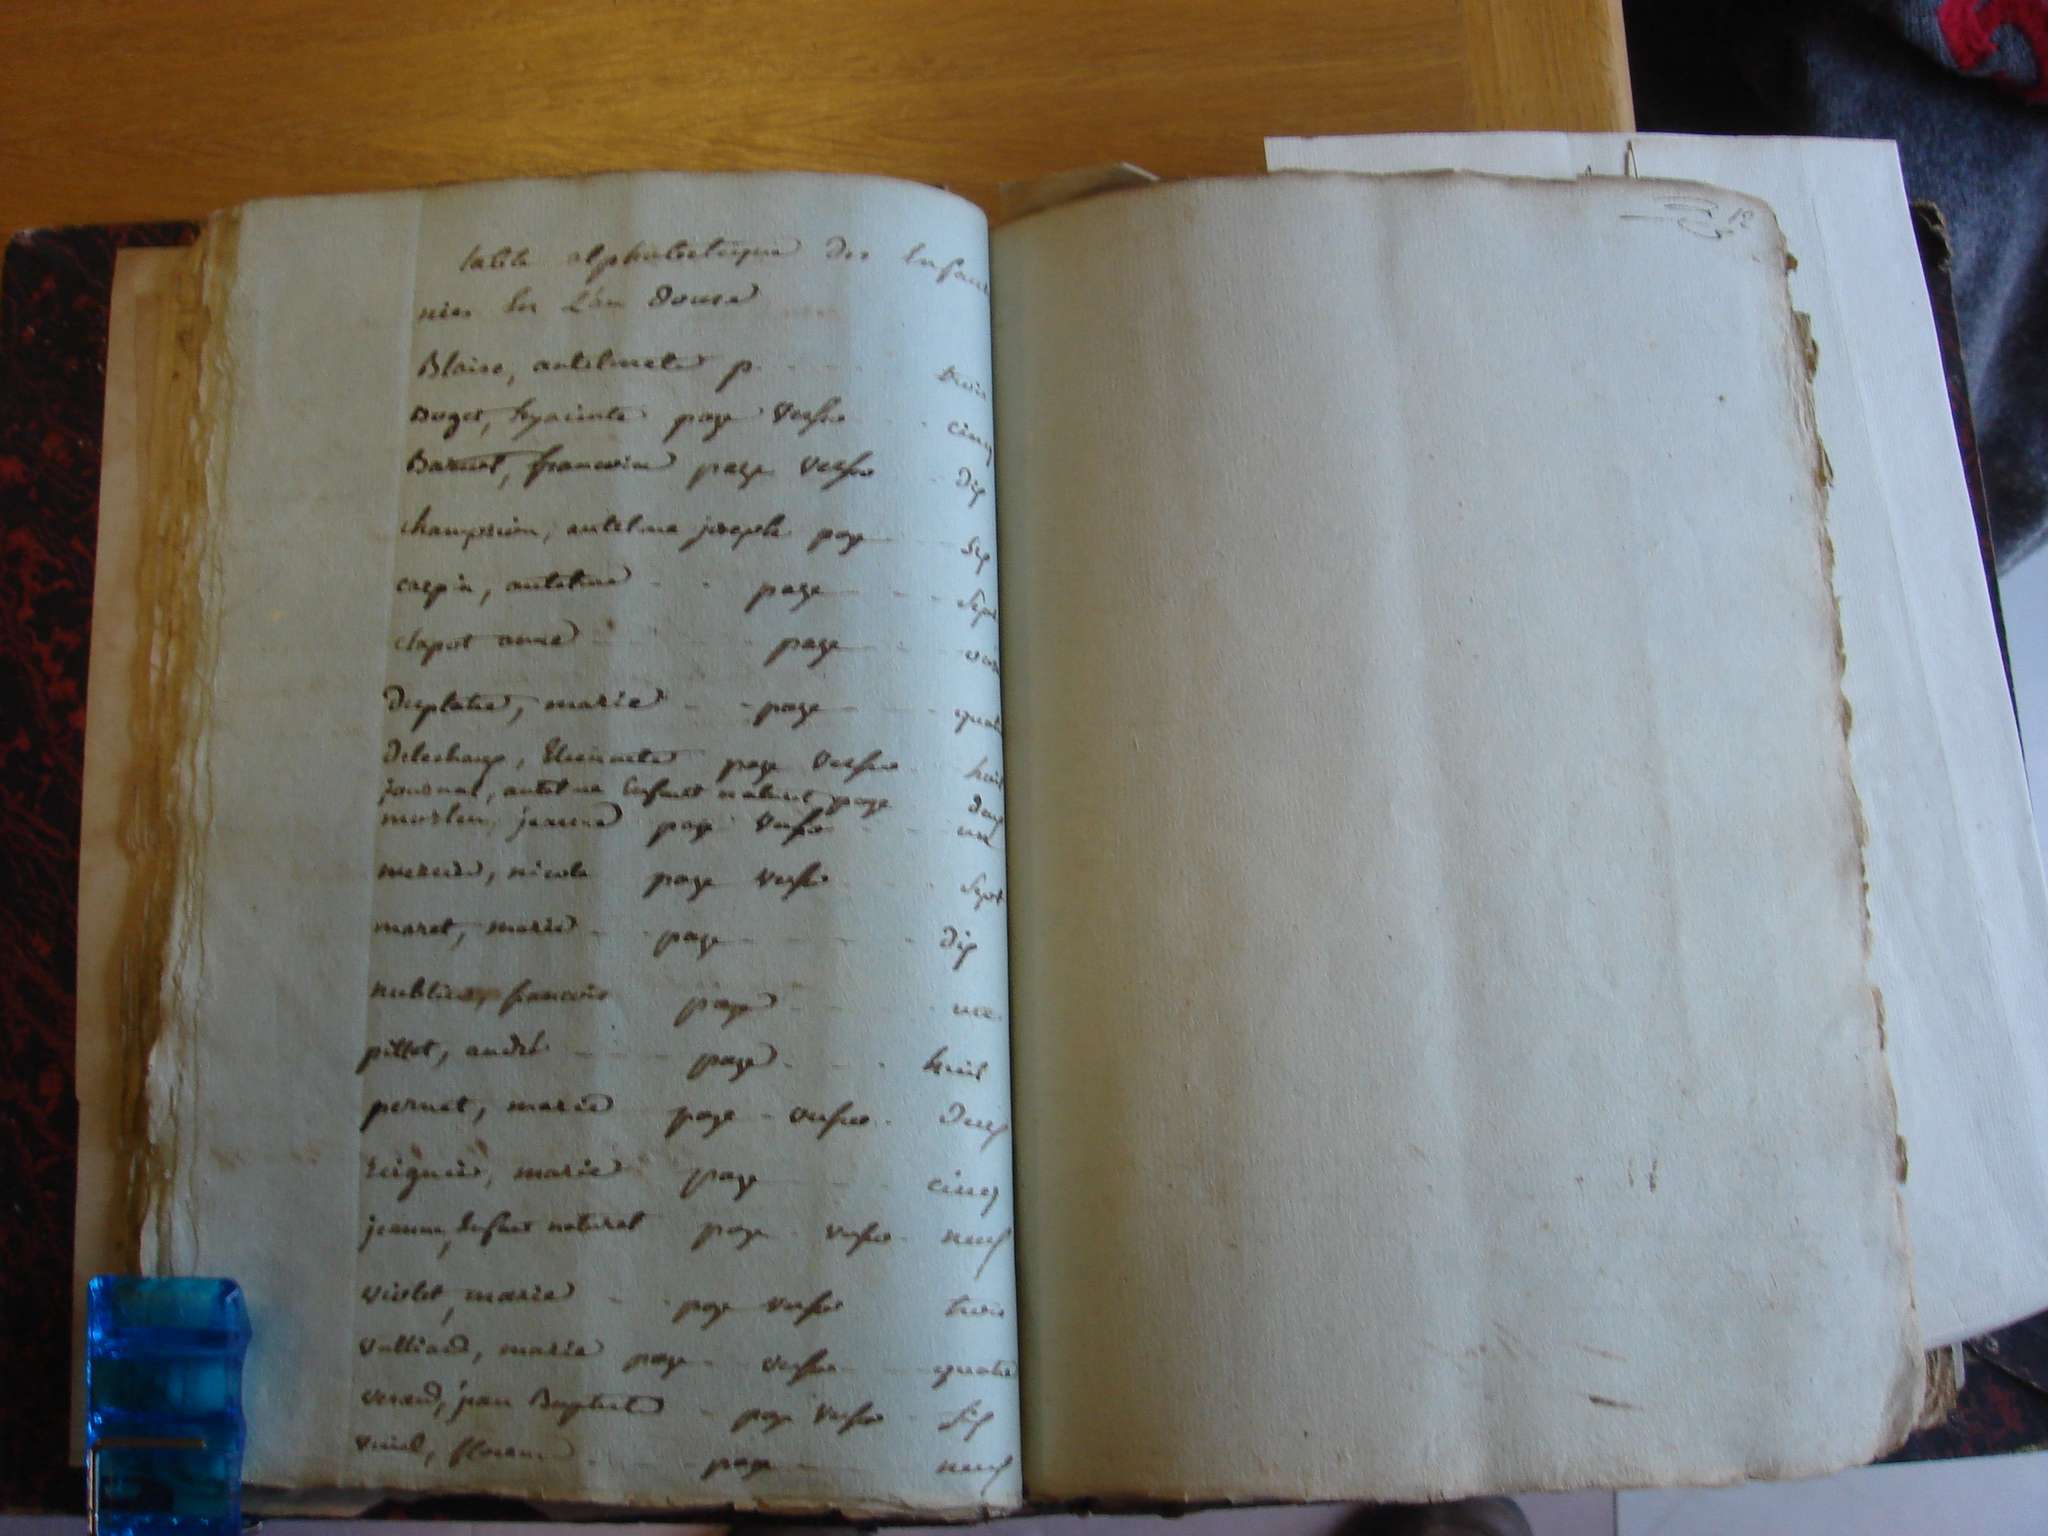 table alphabetique des Enfans
nées en L'an Douze
Blaise, antelmette p. trois
Buget, hyacinte page verso cinq
Barnet, francoise page verso dix
champion, antelme joseph page six
crepin, antelme page sept
clapot anne page
Duplatre, marie page quatre
Delechamp, page verso huit
journal, antelme Enfant naturel page deux
jeanne page verso une
mercier, nicole page verso sept
maret, marie page dix
francois page une
pillot, andré page huit
pernet, marie page verso deux
marie page cinq
jeanne, Enfant naturel page verso neuf
violet, marie page verso trois
vulliard, marie page verso quatre
verard, jean Baptiste page verso six
page neuf
12